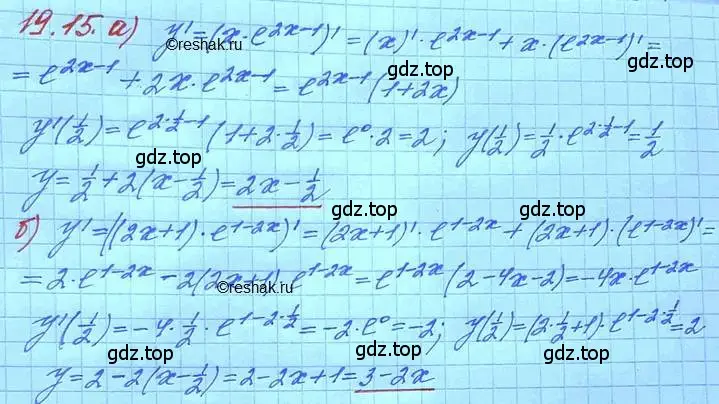 19.15. а) y' = (x·e^(2x-1))' = (x)'·e^(2x-1) + x·(e^(2x-1))' =
©reshak.ru
gdz.top
= e^(2x-1) + 2x·e^(2x-1) = e^(2x-1)(1+2x)
gdz.top
y'(1/2) = e^(2·1/2-1)(1+2·1/2) = e^0·2 = 2; y(1/2) = 1/2·e^(2·1/2-1) = 1/2
gdz.top gdz.top
y = 1/2 + 2(x - 1/2) = 2x - 1/2
gdz.top gdz.top
б) y' = ((2x+1)·e^(1-2x))' = (2x+1)'·e^(1-2x) + (2x+1)·(e^(1-2x))' =
gdz.top
= 2·e^(1-2x) - 2(2x+1)·e^(1-2x) = e^(1-2x)(2-4x-2) = -4x·e^(1-2x)
©reshak.ru gdz.top
y'(1/2) = -4·1/2·e^(1-2·1/2) = -2·e^0 = -2; y(1/2) = (2·1/2+1)·e^(1-2·1/2) = 2
gdz.top gdz.top
y = 2 - 2(x - 1/2) = 2 - 2x + 1 = 3 - 2x